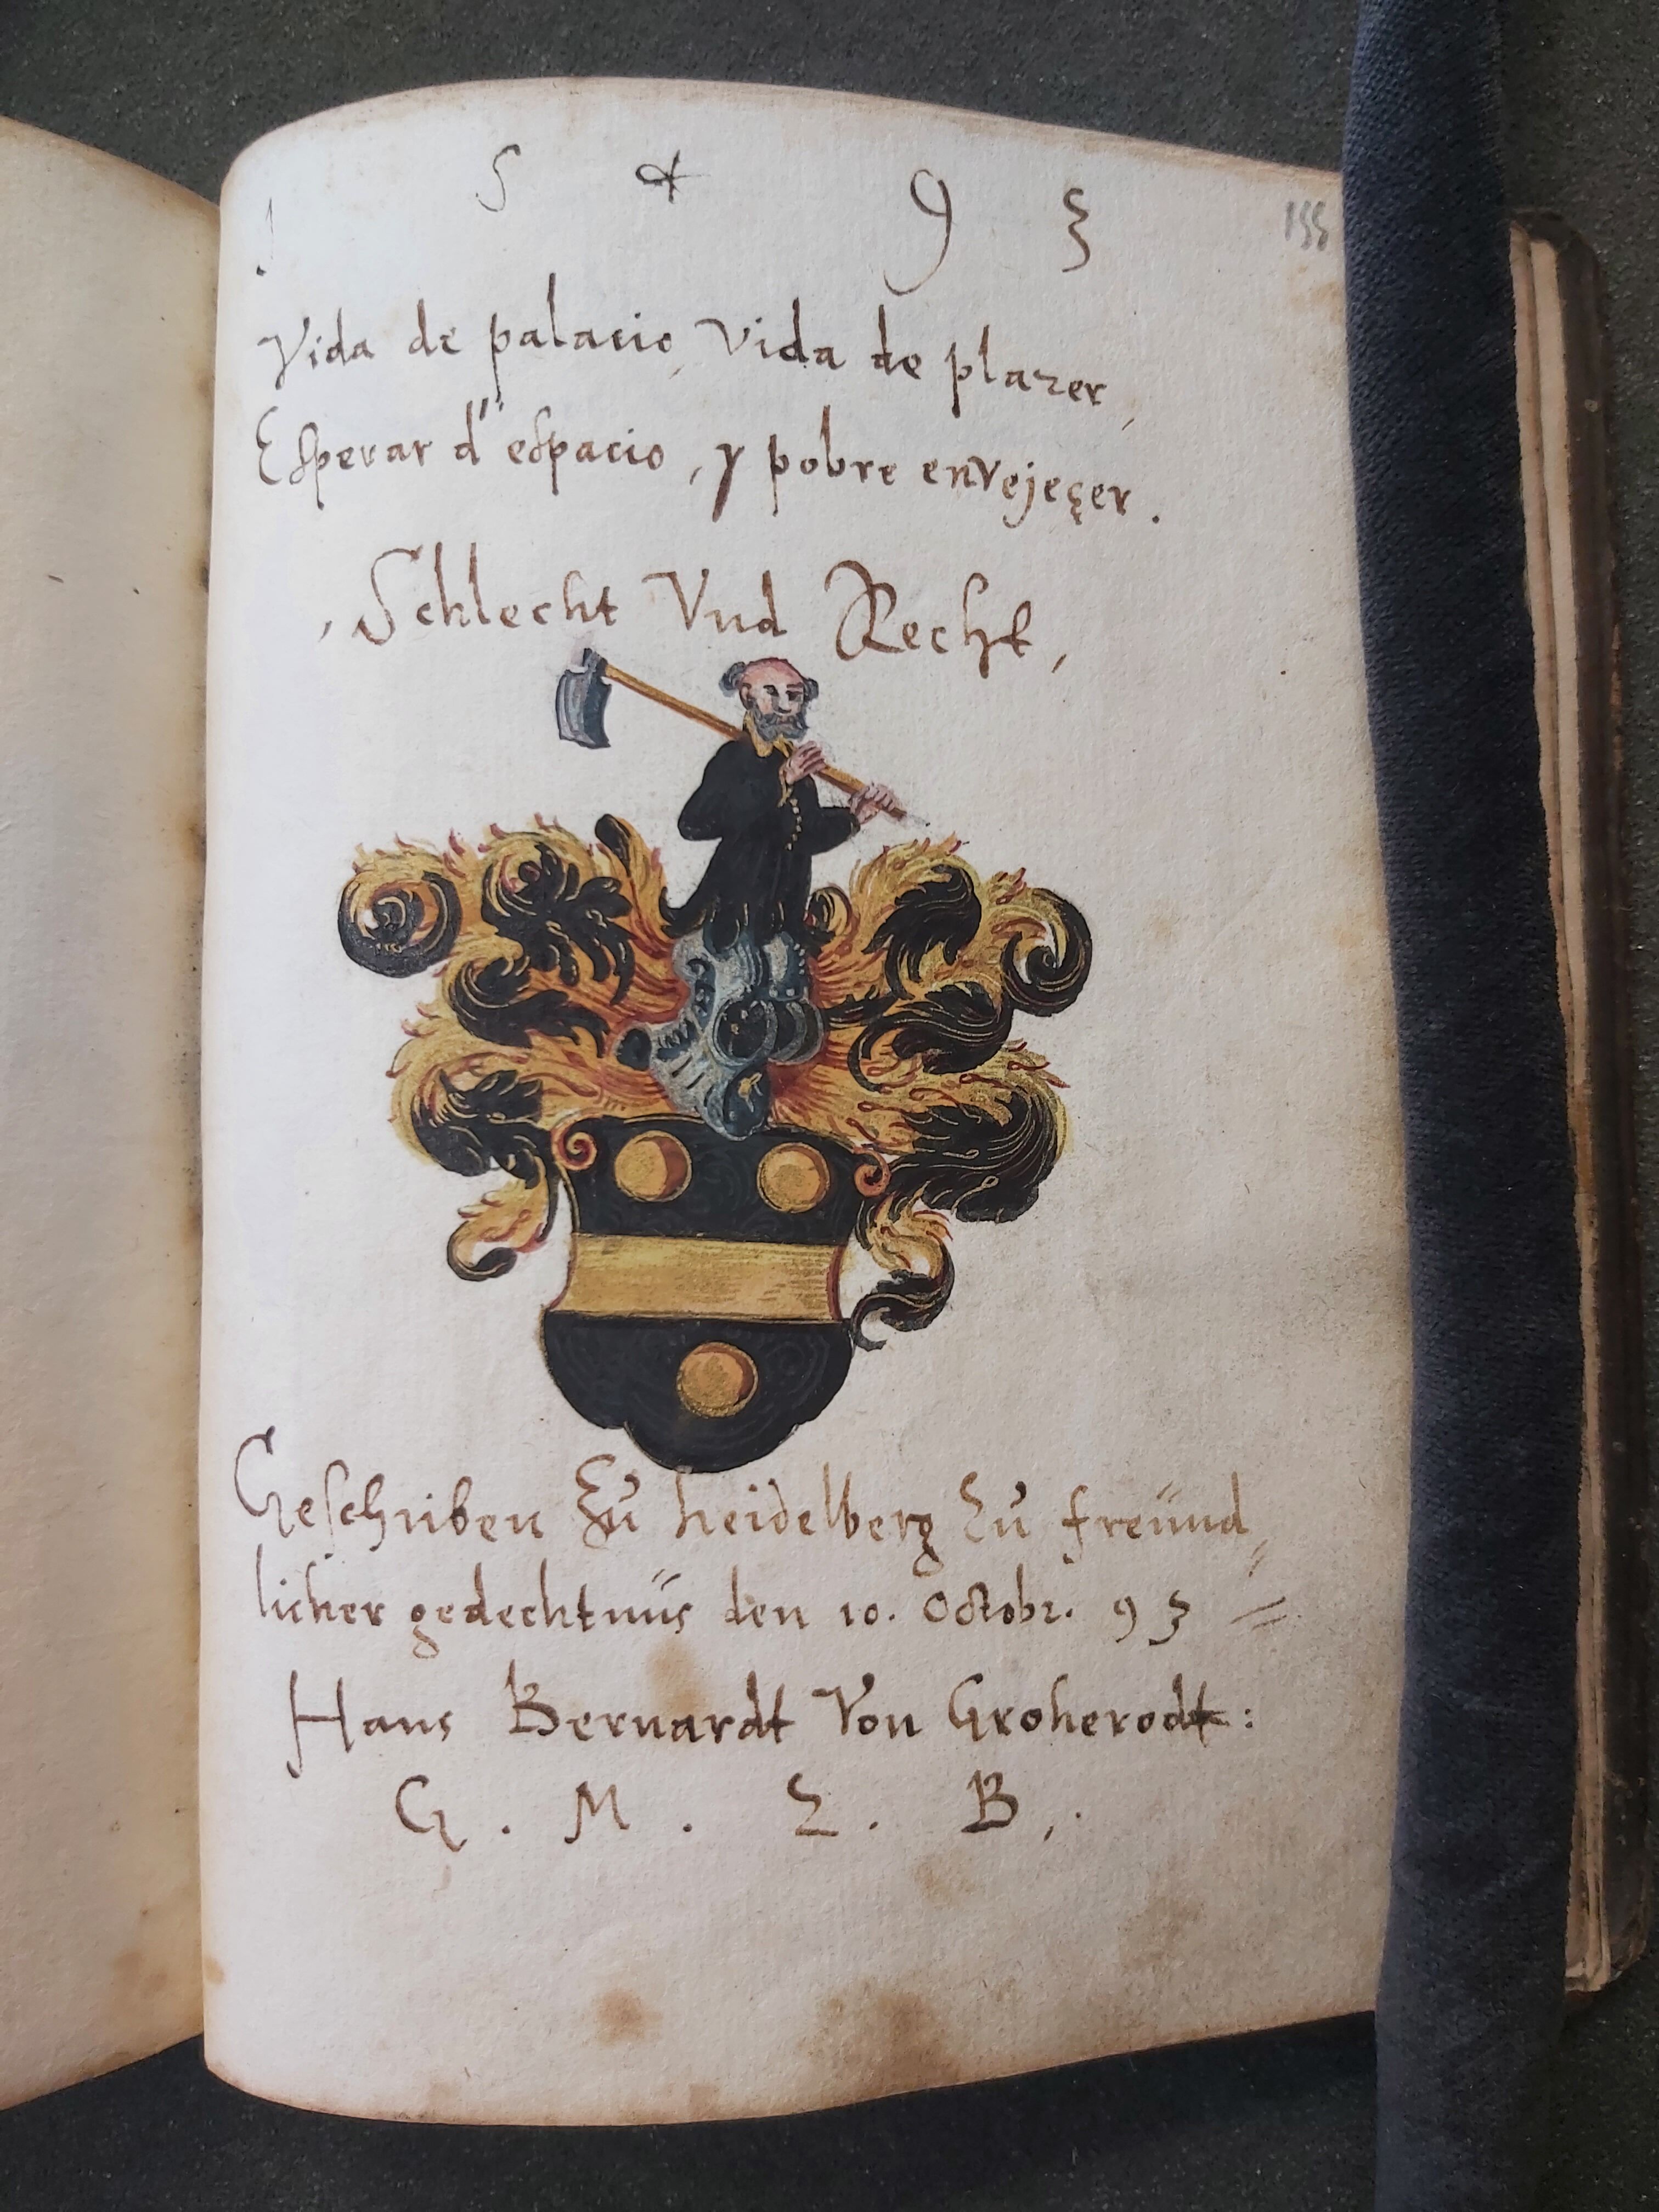 1 5 & 9 3
155
Vida de palacio, vida de plazer,
Esperar d'' espacio, y pobre envejeçer.
, Schlecht Vnd Recht,
Geschriben Zu heidelberg Zu freünd„
licher gedechtnüs den 10. Octobr. 93 =
Hans Bernardt Von Groherodt:
G. M. Z. B,.